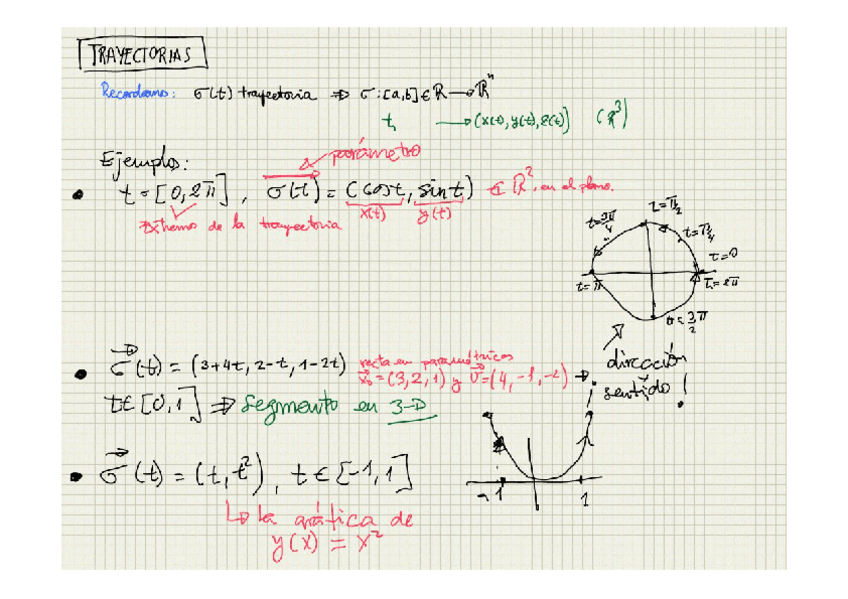 TRAYECTORIAS
Recordamos: σ(t) trayectoria ⇒ σ: [a,b] ∈ R → R^n
t → (x(t), y(t), z(t)) (R^3)
Ejemplo:
parámetro
t = [0, 2π], σ(t) = (cos t, sin t) ∈ R^2, en el plano.
x(t) y(t)
Extremos de la trayectoria
t = π/2
t = 3π/4
t = π/4
t = 0
t = π
t = 2π
t = 3π/2
dirección
sentido!
σ(t) = (3+4t, 2-t, 1-2t) recta en paramétricas
x₀ = (3, 2, 1) y v = (4, -1, -2) →
t ∈ [0, 1] ⇒ Segmento en 3-D
σ(t) = (t, t²), t ∈ [-1, 1]
-1 1
↳ la gráfica de
y(x) = x²